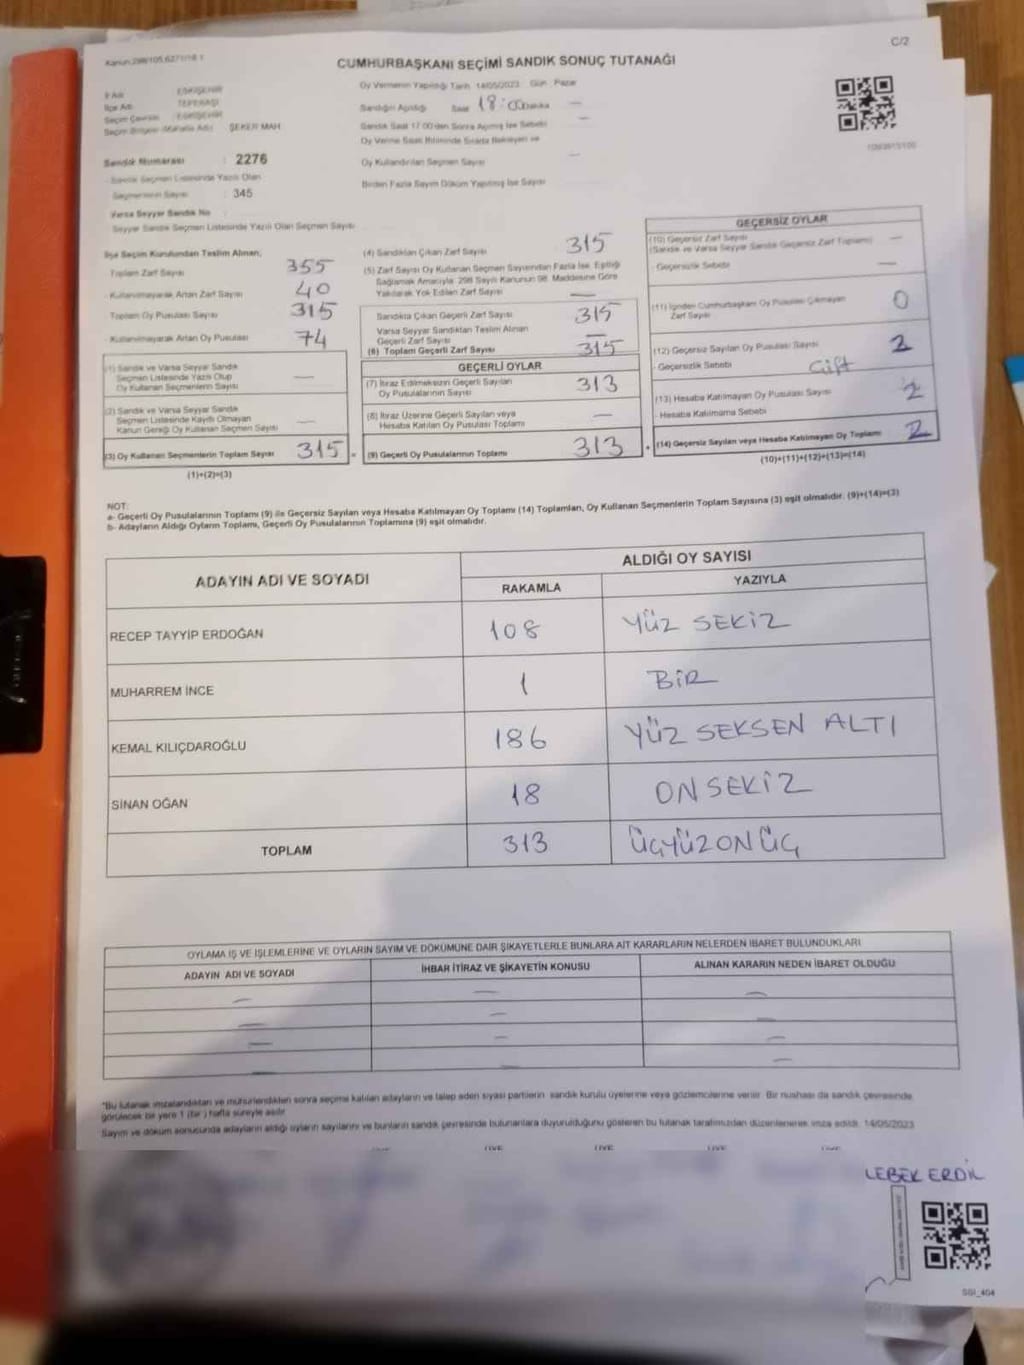 C/2
Kanun:298/105,6271/18.1
CUMHURBAŞKANI SEÇİMİ SANDIK SONUÇ TUTANAĞI
İl Adı ESKİŞEHİR
İlçe Adı TEPEBAŞI
Seçim Çevresi ESKİŞEHİR
Seçim Bölgesi (Mahalle Adı) ŞEKER MAH
Sandık Numarası : 2276
Sandık Seçmen Listesinde Yazılı Olan
Seçmenlerin Sayısı : 345
Varsa Seyyar Sandık No
Seyyar Sandık Seçmen Listesinde Yazılı Olan Seçmen Sayısı
Oy Vermenin Yapıldığı Tarih 14/05/2023 Gün Pazar
Sandığın Açıldığı Saat 18:00 Dakika —
Sandık Saat 17:00'den Sonra Açılmış İse Sebebi —
Oy Verme Saati Bitiminde Sırada Bekleyen ve
Oy Kullandırılan Seçmen Sayısı —
Birden Fazla Sayım Döküm Yapılmış İse Sayısı
İlçe Seçim Kurulundan Teslim Alınan,
Toplam Zarf Sayısı 355
Kullanılmayarak Artan Zarf Sayısı 40
Toplam Oy Pusulası Sayısı 315
Kullanılmayarak Artan Oy Pusulası 74
(1) Sandık ve Varsa Seyyar Sandık
Seçmen Listesinde Yazılı Olup
Oy Kullanan Seçmenlerin Sayısı —
(2) Sandık ve Varsa Seyyar Sandık
Seçmen Listesinde Kayıtlı Olmayan
Kanun Gereği Oy Kullanan Seçmen Sayısı —
(3) Oy Kullanan Seçmenlerin Toplam Sayısı 315
(1)+(2)=(3)
(4) Sandıktan Çıkan Zarf Sayısı 315
(5) Zarf Sayısı Oy Kullanan Seçmen Sayısından Fazla İse, Eşitliği
Sağlamak Amacıyla; 298 Sayılı Kanunun 98. Maddesine Göre
Yakılarak Yok Edilen Zarf Sayısı —
Sandıkta Çıkan Geçerli Zarf Sayısı 315
Varsa Seyyar Sandıktan Teslim Alınan
Geçerli Zarf Sayısı —
(6) Toplam Geçerli Zarf Sayısı 315
GEÇERLİ OYLAR
(7) İtiraz Edilmeksizin Geçerli Sayılan
Oy Pusulalarının Sayısı 313
(8) İtiraz Üzerine Geçerli Sayılan veya
Hesaba Katılan Oy Pusulası Toplamı —
(9) Geçerli Oy Pusulalarının Toplamı 313
GEÇERSİZ OYLAR
(10) Geçersiz Zarf Sayısı —
(Sandık ve Varsa Seyyar Sandık Geçersiz Zarf Toplamı)
Geçersizlik Sebebi —
(11) İçinden Cumhurbaşkanı Oy Pusulası Çıkmayan
Zarf Sayısı 0
(12) Geçersiz Sayılan Oy Pusulası Sayısı 2
Geçersizlik Sebebi Çift
(13) Hesaba Katılmayan Oy Pusulası Sayısı 2
Hesaba Katılmama Sebebi
(14) Geçersiz Sayılan veya Hesaba Katılmayan Oy Toplamı 2
(10)+(11)+(12)+(13)=(14)
NOT:
a- Geçerli Oy Pusulalarının Toplamı (9) ile Geçersiz Sayılan veya Hesaba Katılmayan Oy Toplamı (14) Toplamları, Oy Kullanan Seçmenlerin Toplam Sayısına (3) eşit olmalıdır. (9)+(14)=(3)
b- Adayların Aldığı Oyların Toplamı, Geçerli Oy Pusulalarının Toplamına (9) eşit olmalıdır.
ADAYIN ADI VE SOYADI ALDIĞI OY SAYISI
RAKAMLA YAZIYLA
RECEP TAYYİP ERDOĞAN 108 YÜZ SEKİZ
MUHARREM İNCE 1 BİR
KEMAL KILIÇDAROĞLU 186 YÜZ SEKSEN ALTI
SİNAN OĞAN 18 ONSEKİZ
TOPLAM 313 ÜÇYÜZONÜÇ
OYLAMA İŞ VE İŞLEMLERİNE VE OYLARIN SAYIM VE DÖKÜMÜNE DAİR ŞİKAYETLERLE BUNLARA AİT KARARLARIN NELERDEN İBARET BULUNDUKLARI
ADAYIN ADI VE SOYADI İHBAR İTİRAZ VE ŞİKAYETİN KONUSU ALINAN KARARIN NEDEN İBARET OLDUĞU
*Bu tutanak imzalandıktan ve mühürlendikten sonra seçime katılan adayların ve talep eden siyasi partilerin sandık kurulu üyelerine veya gözlemcilerine verilir. Bir nushası da sandık çevresinde
görülecek bir yere 1 (bir) hafta süreyle asılır.
Sayım ve döküm sonucunda adayların aldığı oyların sayılarını ve bunların sandık çevresinde bulunanlara duyurulduğunu gösteren bu tutanak tarafımızdan düzenlenerek imza edildi. 14/05/2023
LEBEK ERDİL
SGI_404